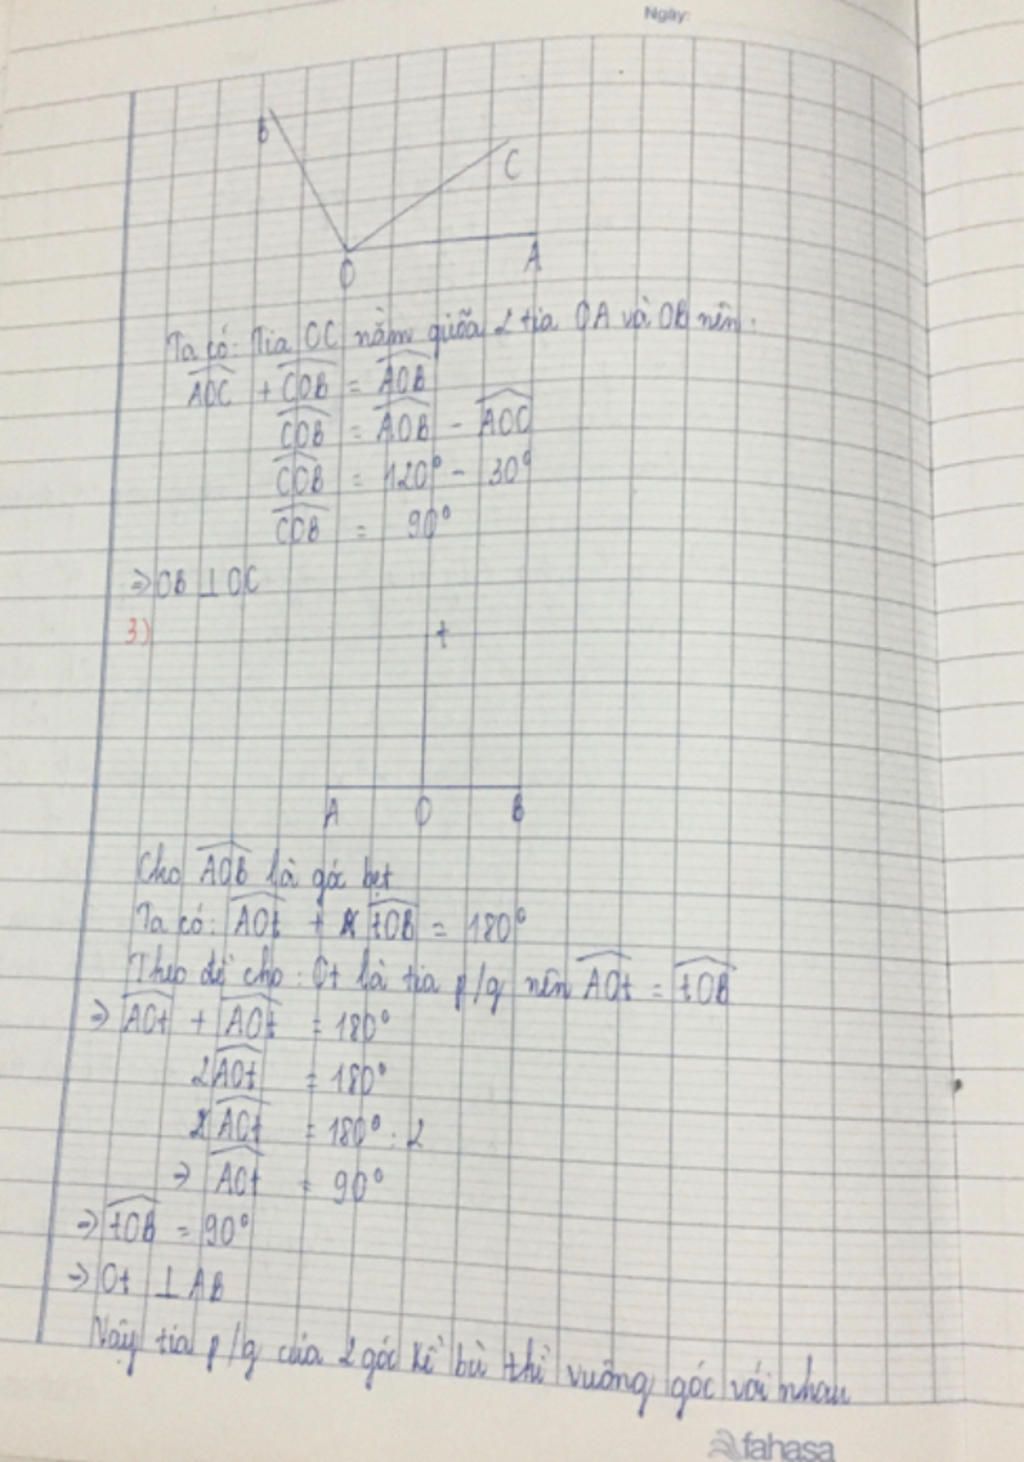 Ngày:
B
C
O
A
Ta có: Tia OC nằm giữa 2 tia OA và OB nên.
AOC + COB = AOB
COB = AOB - AOC
COB = 120° - 30°
COB = 90°
⇒ OB ⊥ OC
3)
t
A O B
Cho AOB là góc bẹt
Ta có: AOt + tOB = 180°
Theo đề cho: Ot là tia p/g nên AOt = tOB
⇒ AOt + AOt = 180°
2AOt = 180°
AOt = 180° : 2
⇒ AOt = 90°
⇒ tOB = 90°
⇒ Ot ⊥ AB
Vậy tia p/g của 2 góc kề bù thì vuông góc với nhau
fahasa